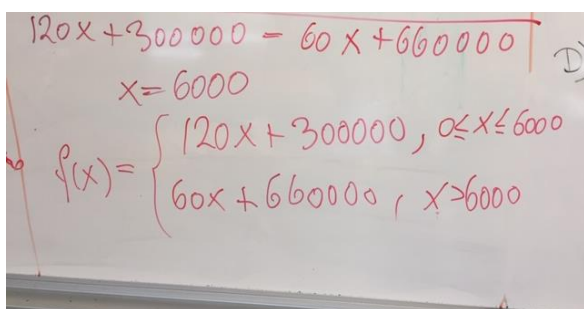 120x+300000 = 60x+660000
D)
x=6000
f(x)= { 120x+300000, 0≤x≤6000
60x+660000, x>6000